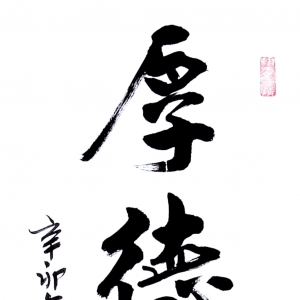 厚德
辛卯年